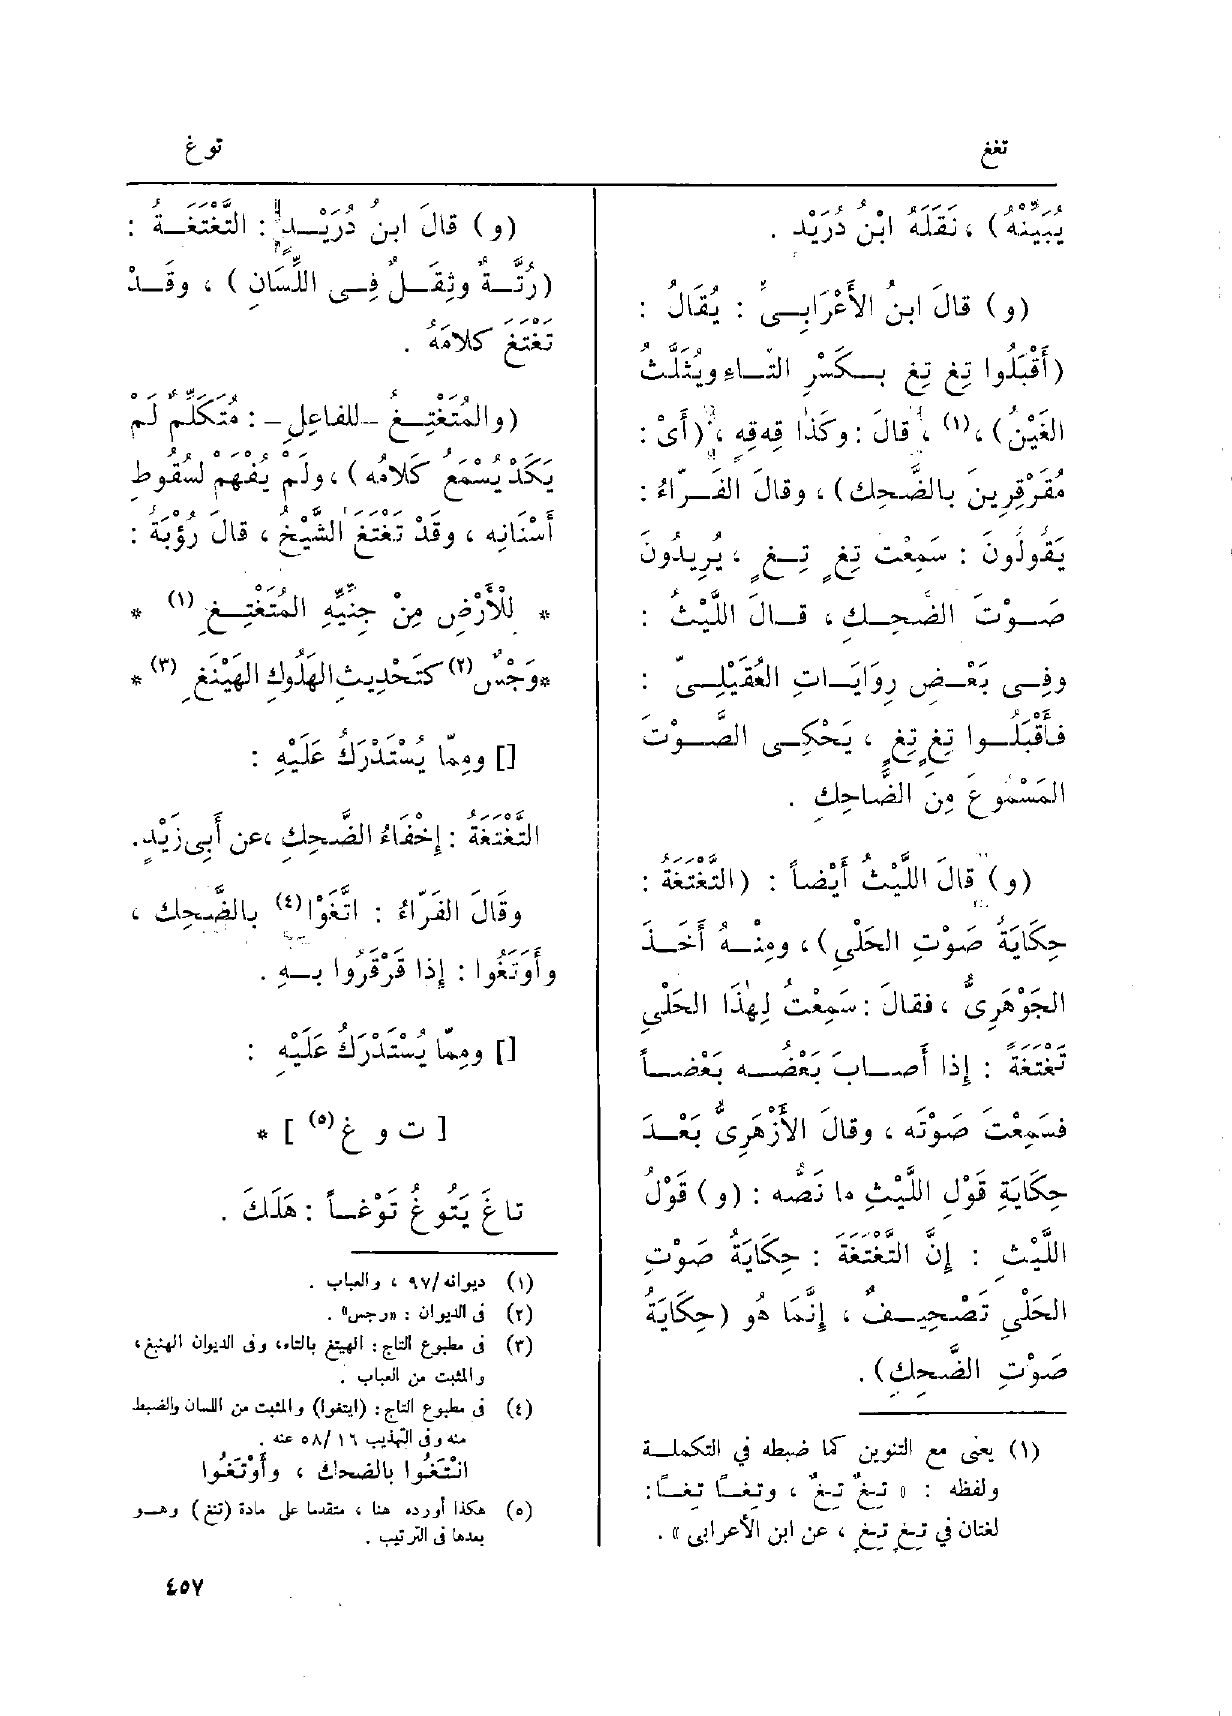 تغغ
توغ
يُبَيِّنْهُ) ، نَقَلَهُ ابْنُ دُرَيْد .
(و) قالَ ابنُ الأَعْرَابِىِّ : يُقَالُ :
(أَقْبَلُوا تِغِ تِغِ بِكَسْرِ التّاءِ ويُثَلَّثُ
الغَيْنُ)،(١) ، قالَ : وكَذَا قِهِ قِهِ ، (أَىْ :
مُقَرْقِرِينَ بالضَّحِك) ، وقالَ الفَرّاءُ :
يَقُولُونَ : سَمِعْت تِغٍ تِغٍ ، يُرِيدُونَ
صَوْتَ الضَّحِكِ ، قالَ اللَّيْثُ :
وفِى بَعْضِ رِوَايَاتِ العُقَيْلِىّ :
فأَقْبَلُوا تِغٍ تِغٍ ، يَحْكِى الصَّوْتَ
المَسْمُوعَ مِنَ الضَّاحِكِ .
(و) قَالَ اللَّيْثُ أَيْضاً : (التَّغْتَغَةُ :
حِكَايَةُ صَوْتِ الحَلْىِ) ، ومِنْهُ أَخَذَ
الجَوْهَرِىُّ ، فقالَ : سَمِعْتُ لِهٰذَا الحَلْىِ
تَغْتَغَةً : إِذا أَصابَ بَعْضُه بَعْضاً
فسَمِعْتَ صَوْتَه ، وقالَ الأَزْهَرِىُّ بَعْدَ
حِكَايَةِ قَوْلِ اللَّيْثِ ما نَصُّه : (و) قَوْلُ
اللَّيْثِ : إِنَّ التَّغْتَغَةَ : حِكَايَةُ صَوْتِ
الحَلْىِ تَصْحِيفٌ ، إِنَّمَا هُو (حِكَايَةُ
صَوْتِ الضَّحِك) .
(١) يعنى مع التنوين كما ضبطه في التكملة
ولفظه : « تِغٌ تِغٌ ، وتِغاً تِغاً :
لغتان في تِغٍ تِغٍ ، عن ابن الأعرابى » .
(و) قالَ ابنُ دُرَيْدٍ : التَّغْتَغَةُ :
(رُتَّةٌ وثِقَلٌ فِى اللِّسَانِ ) ، وقَدْ
تَغْتَغَ كلامَهُ .
(والمُتَغْتِغُ -للفاعِلِ- : مُتَكَلِّمٌ لَم
يَكَدْ يُسْمَعُ كَلامُه) ، ولَمْ يُفْهَم لسُقُوطِ
أَسْنَانِه ، وقَدْ تَغْتَغَ الشَّيْخُ ، قالَ رُؤْبَةُ :
* لِلْأَرْضِ مِنْ جِنِّيِّهِ المُتَغْتِغِ (١) *
*وَجْسٌ (٢) كتَحْدِيثِ الهَلُوكِ الهَيْنَغِ (٣) *
[] ومِمّا يُسْتَدْرَكُ عَلَيْهِ :
التَّغْتَغَةُ : إِخْفَاءُ الضَّحِكِ ، عن أَبِى زَيْدٍ.
وقَالَ الفَرّاءُ : اتَّغَوْا(٤) بالضَّحِك ،
وأَوْتَغُوا : إِذا قَرْقَرُوا بِهِ .
[] ومِمّا يُسْتَدْرَكُ عَلَيْهِ :
[ ت و غ (٥) ] *
تاغَ يَتُوغُ تَوْغاً : هَلَكَ .
(١) ديوانه/٩٧ ، والعباب .
(٢) فى الديوان : «رجس» .
(٣) فى مطبوع التاج : الهيتغ بالتاء، وفى الديوان الهنبغ ،
والمثبت من العباب .
(٤) فى مطبوع التاج : (ايتغوا) والمثبت من اللسان والضبط
منه وفى التهذيب ١٦ /٥٨ عنه .
انْتَغُوا بالضحك ، وأَوْتَغُوا
(٥) هكذا أورده هنا ، متقدما على مادة (تنغ) وهو
بعدها فى الترتيب .
٤٥٧